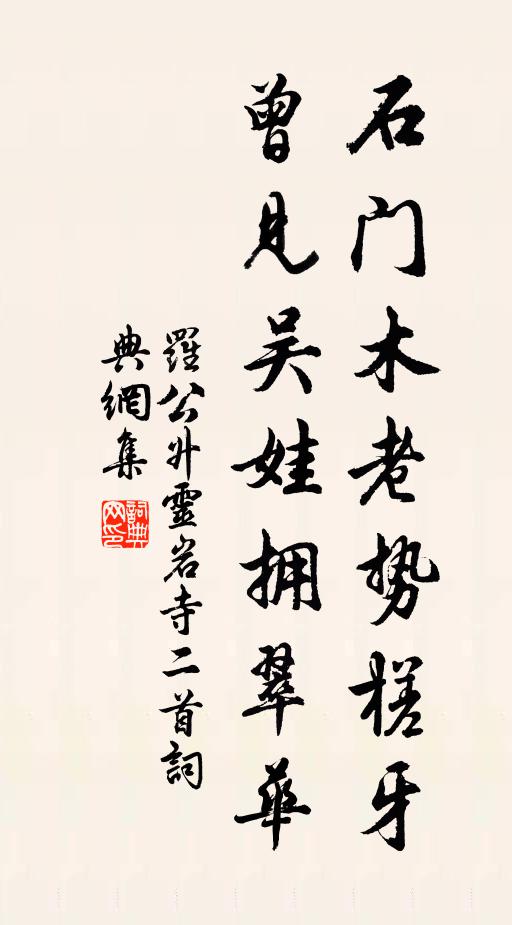 石门木老势槎牙
曾见吴娃拥翠华
羅公升靈岩寺二首詞
典網集
詞典网印